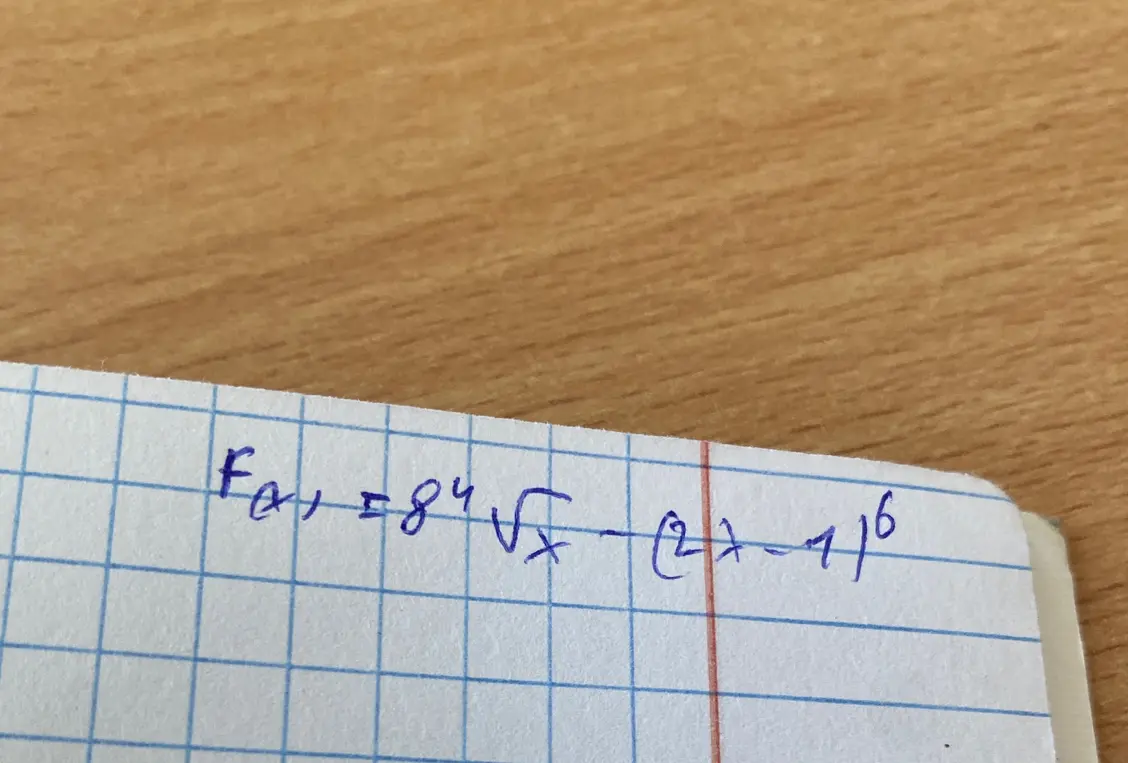 F(x) = 8⁴√x - (2x - 1)⁶